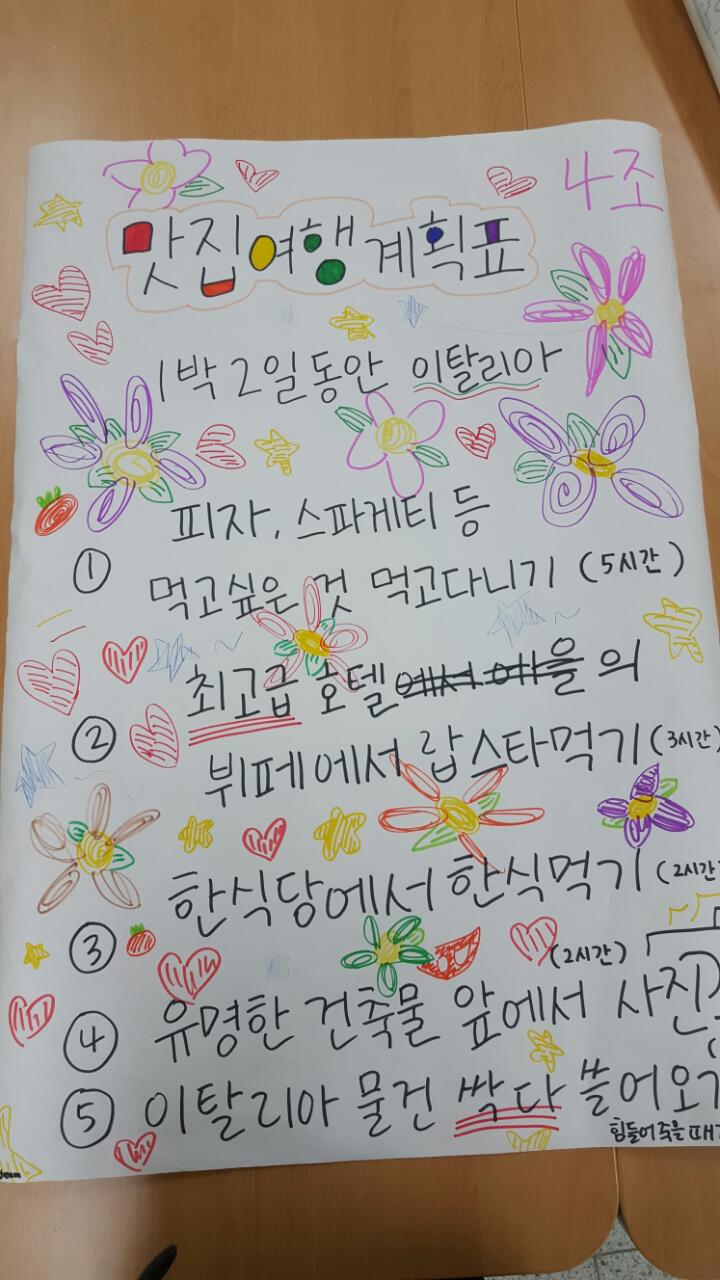 4조
맛집여행 계획표
1박 2일동안 이탈리아
피자, 스파게티 등
① 먹고싶은 것 먹고다니기 (5시간)
② 최고급 호텔에서 애을 의
뷔페에서 랍스타먹기 (3시간)
③ 한식당에서 한식먹기 (2시간)
(2시간)
④ 유명한 건축물 앞에서 사진
⑤ 이탈리아 물건 싹다 쓸어오기
힘들어 죽을때